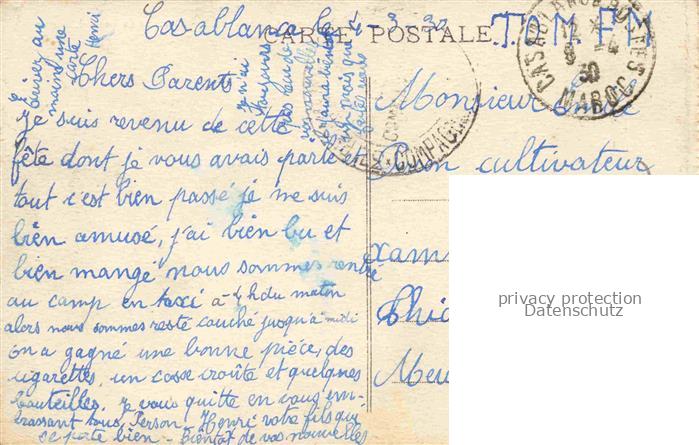 Casablanca le 4 3 30
CARTE POSTALE
T.O.M. F.M
CASABLANCA
MAROC
30
COMPAGNIE
Envoyer au
moins une
carte
Henri
Chers Parents
Je suis revenu de cette
fête dont je vous avais parlé
tout c'est bien passé je me suis
bien amusé, j'ai bien bu et
bien mangé nous sommes rentré
au camp en taxi à 4 h du matin
alors nous sommes resté couché jusqu'à midi
on a gagné une bonne pièce, des
cigarettes, un casse croûte et quelques
bouteilles. Je vous quitte en vous em-
brassant tous, Person Henri votre fils qui
se porte bien - Bientôt de vos nouvelles
je n'ai
toujours
pas eu de
vos nouvelles
Monsieur
cultivateur
privacy protection
Datenschutz
Meu